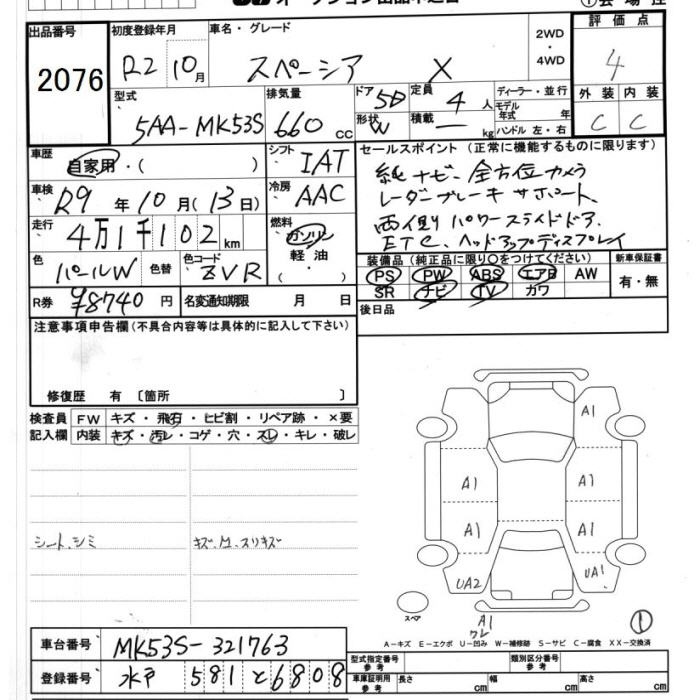 出品番号 2076
初度登録年月 R2 10月
車名・グレード スペーシア X
2WD・4WD
評価点 4
型式 5AA-MK53S
排気量 660 cc
ドア 5D
形状 W
定員 4 人
積載 ー kg
ディーラー・並行
モデル年式 年
ハンドル 左・右
外装 C
内装 C
車歴 自家用・( )
シフト IAT
車検 R9年10月(13日)
冷房 AAC
走行 4万1千102km
燃料 ガソリン・軽油・( )
色 パールW 色替
色コード ZVR
R券 ¥8740円
名変通知期限 月 日
セールスポイント (正常に機能するものに限ります)
純ナビ、全方位カメラ
レーダーブレーキサポート、
両側パワースライドドア、
ETC、ヘッドアップディスプレイ
装備品(純正品に限り〇をつけてください)
PS PW ABS エアB AW
SR ナビ TV カワ
新車保証書 有・無
後日品
注意事項申告欄(不具合内容等は具体的に記入して下さい)
修復歴 有〔箇所 〕
検査員記入欄
FW キズ・飛石・ヒビ割・リペア跡・×要
内装 キズ・汚レ・コゲ・穴・スレ・キレ・破レ
シート、シミ
キズ、スリキズ
A1
A1 A1
A1 A1
UA2 UA1
スペア
A1
①
A-キズ E-エクボ U-凹み W-補修跡 S-サビ C-腐食 XX-交換済
車台番号 MK53S-321763
登録番号 水戸 581 と 6808
型式指定番号 参考
類別区分番号 参考
車庫証明用 参考 長さ cm 幅 cm 高さ cm